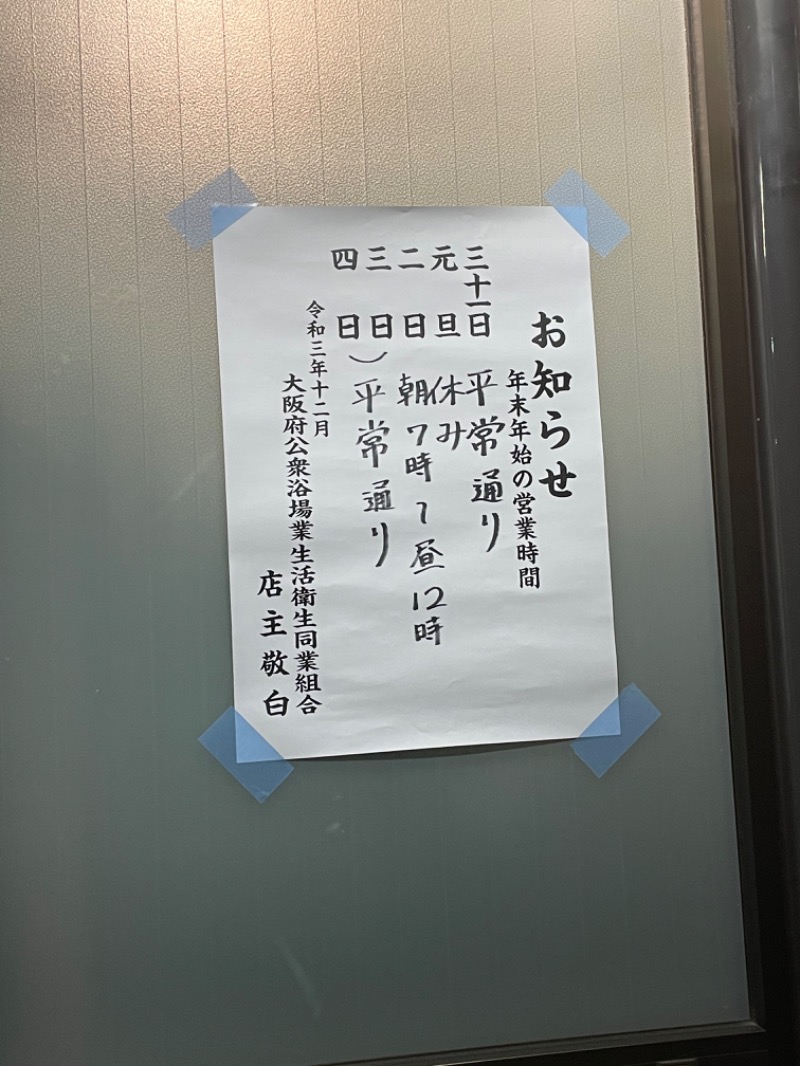 お知らせ
年末年始の営業時間
三十一日 平常通り
元旦 休み
二日 朝7時〜昼12時
三日
四日 ) 平常通り
令和三年十二月
大阪府公衆浴場業生活衛生同業組合
店主敬白